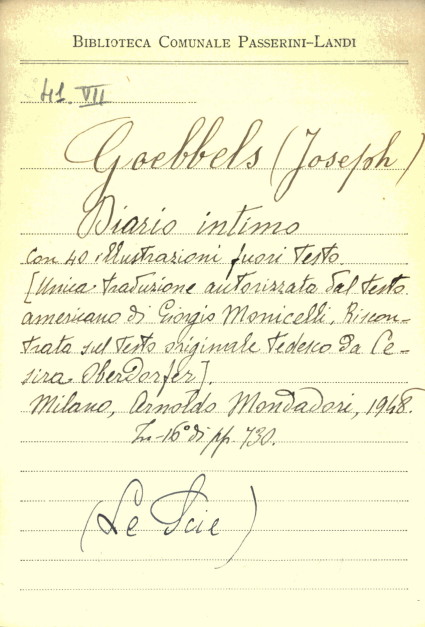 BIBLIOTECA COMUNALE PASSERINI-LANDI
41. VII
Goebbels (Joseph)
Diario intimo
con 40 illustrazioni fuori testo.
[Unica traduzione autorizzata dal testo
americano di Giorgio Monicelli, Riscon-
trata sul testo originale tedesco da Ce-
sira Oberdorfer].
Milano, Arnoldo Mondadori, 1948.
In-16° di pp. 730.
(Le Scie)